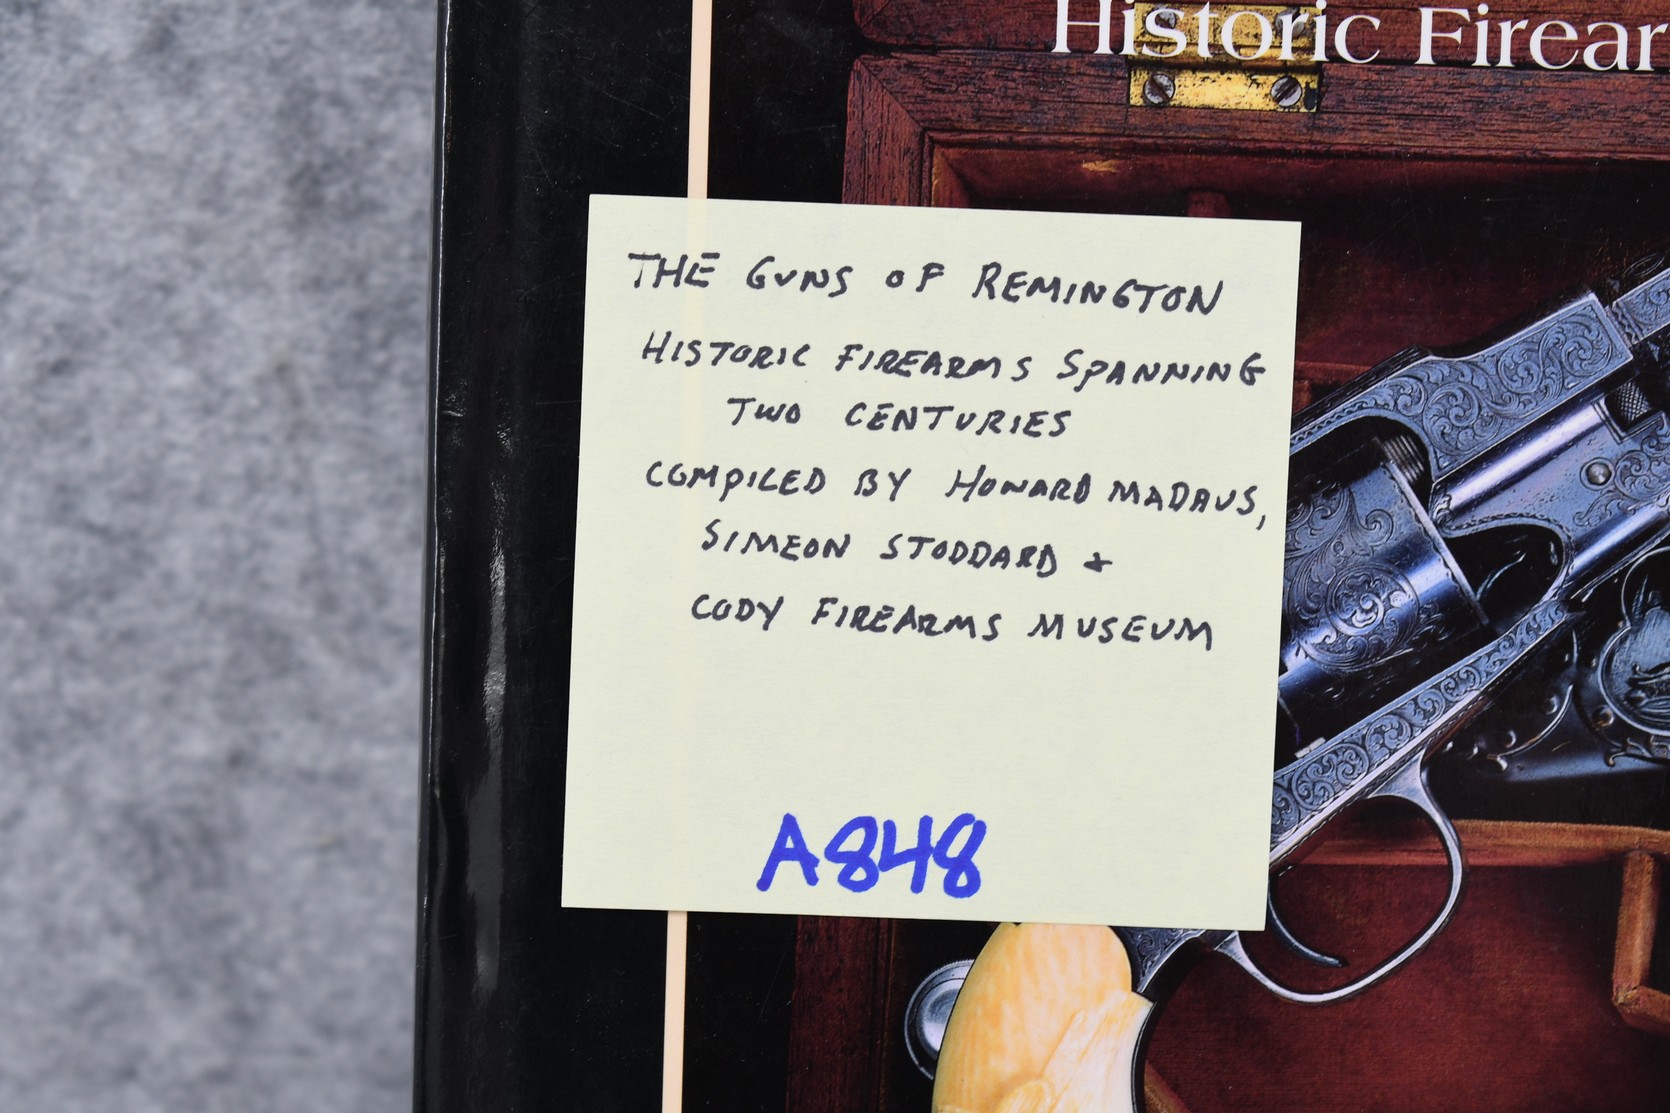 Historic Firear
THE GUNS OF REMINGTON
HISTORIC FIREARMS SPANNING
TWO CENTURIES
COMPILED BY HOWARD MADAUS,
SIMEON STODDARD &
CODY FIREARMS MUSEUM
A848